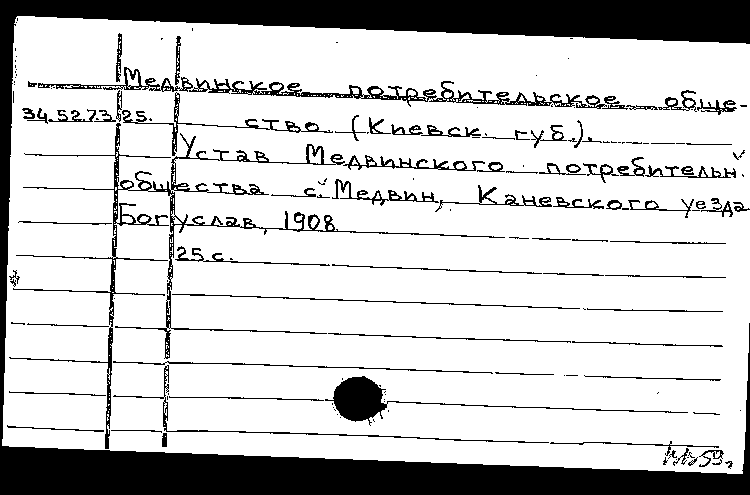 Медвинское потребительское обще-
34.52.73.25. ство (Киевск. губ.).
Устав Медвинского потребительн.
общества с. Медвин, Каневского уезда
Богуслав, 1908
25 с.